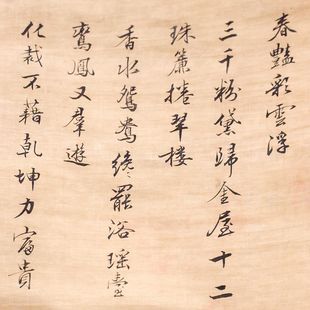 春豔彩雲浮
三千粉黛歸金屋十二
珠簾捲翠樓
香水鴛鴦纔罷浴瑤臺
鸞鳳又羣遊
化裁不藉乾坤力富貴